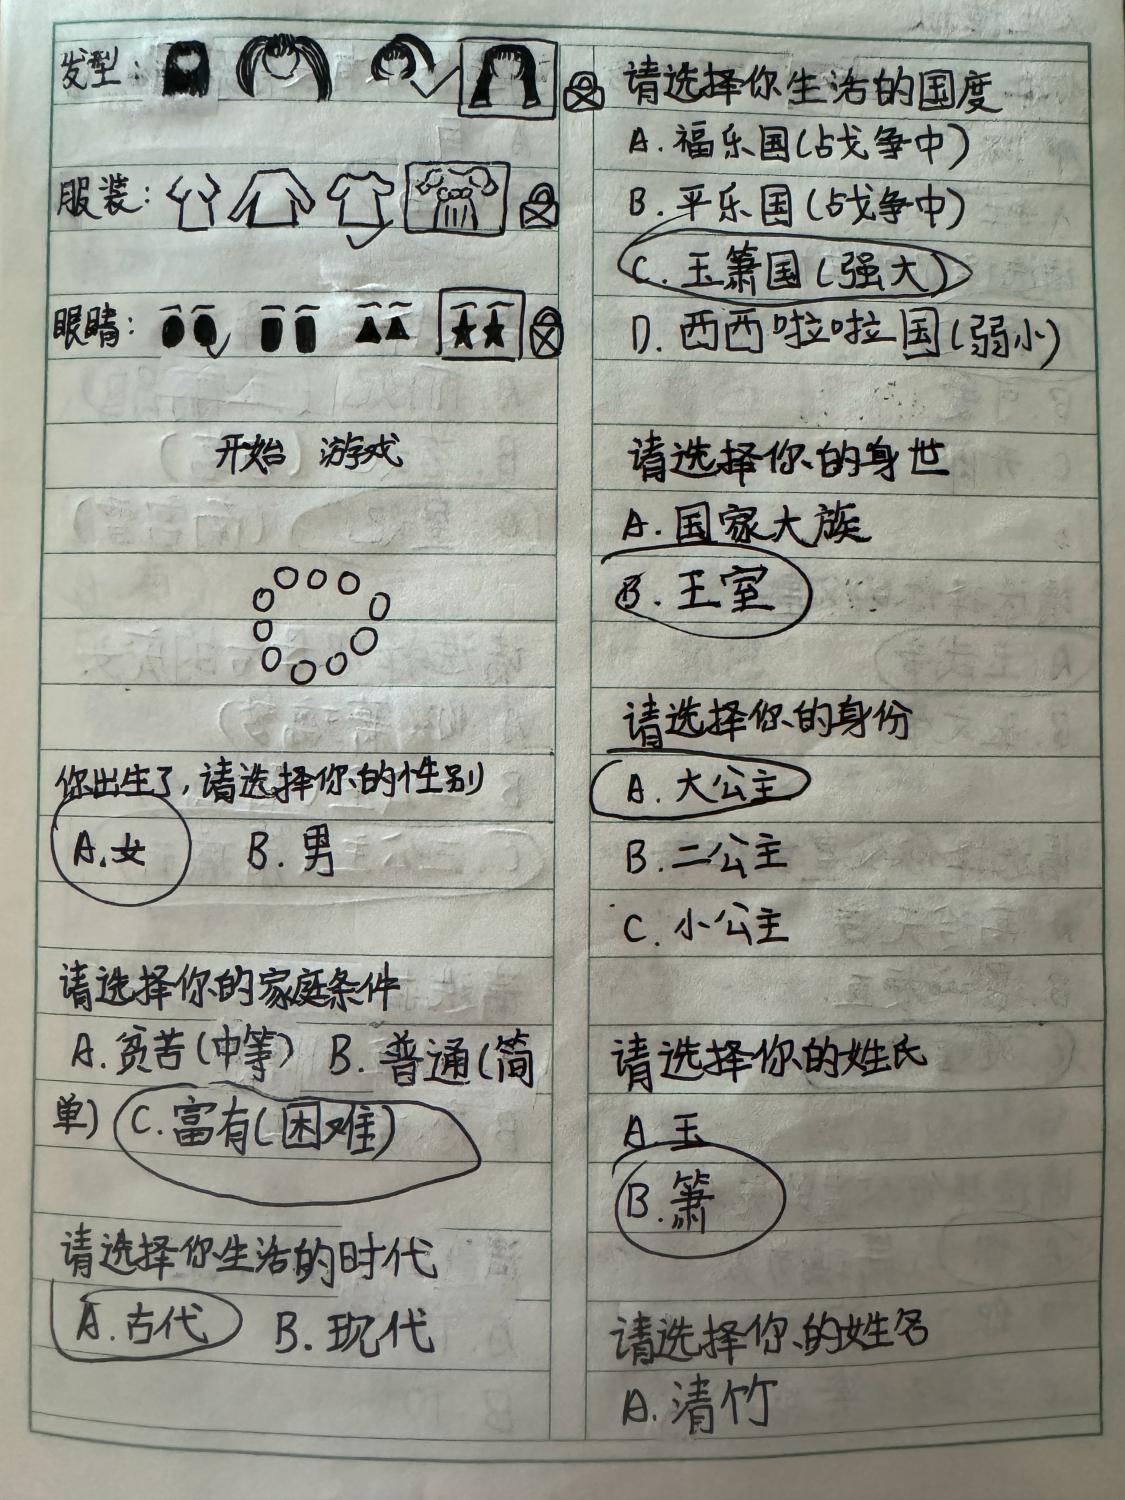 发型：
服装：
眼睛：
开始 游戏
你出生了，请选择你的性别
A.女 B.男
请选择你的家庭条件
A.贫苦(中等) B.普通(简
单) C.富有(困难)
请选择你生活的时代
A.古代 B.现代
请选择你生活的国度
A.福乐国(战争中)
B.平乐国(战争中)
C.玉箫国(强大)
D.西西啦啦国(弱小)
请选择你的身世
A.国家大族
B.王室
请选择你的身份
A.大公主
B.二公主
C.小公主
请选择你的姓氏
A.玉
B.箫
请选择你的姓名
A.清竹